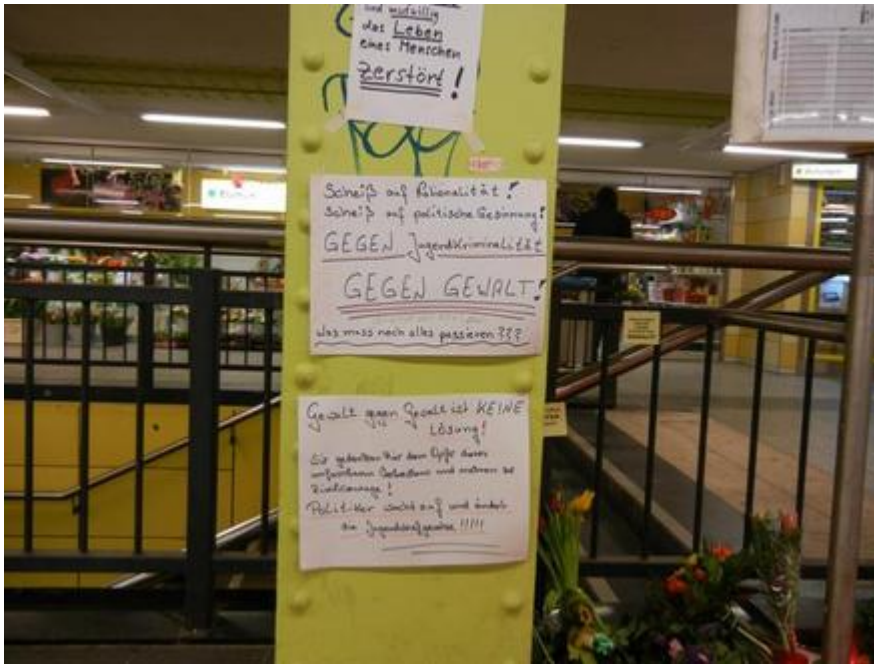 und mutwillig
das Leben
eines Menschen
Zerstört!
Scheiß auf Nationalität!
Scheiß auf politische Gesinnung!
GEGEN Jugendkriminalität
GEGEN GEWALT!
Was muss noch alles passieren???
Gewalt gegen Gewalt ist KEINE
Lösung!
Wir gedenken hier dem Opfer dieses
und nehmen
Politiker wacht auf und ändert
die Jugendstrafgesetze !!!!!